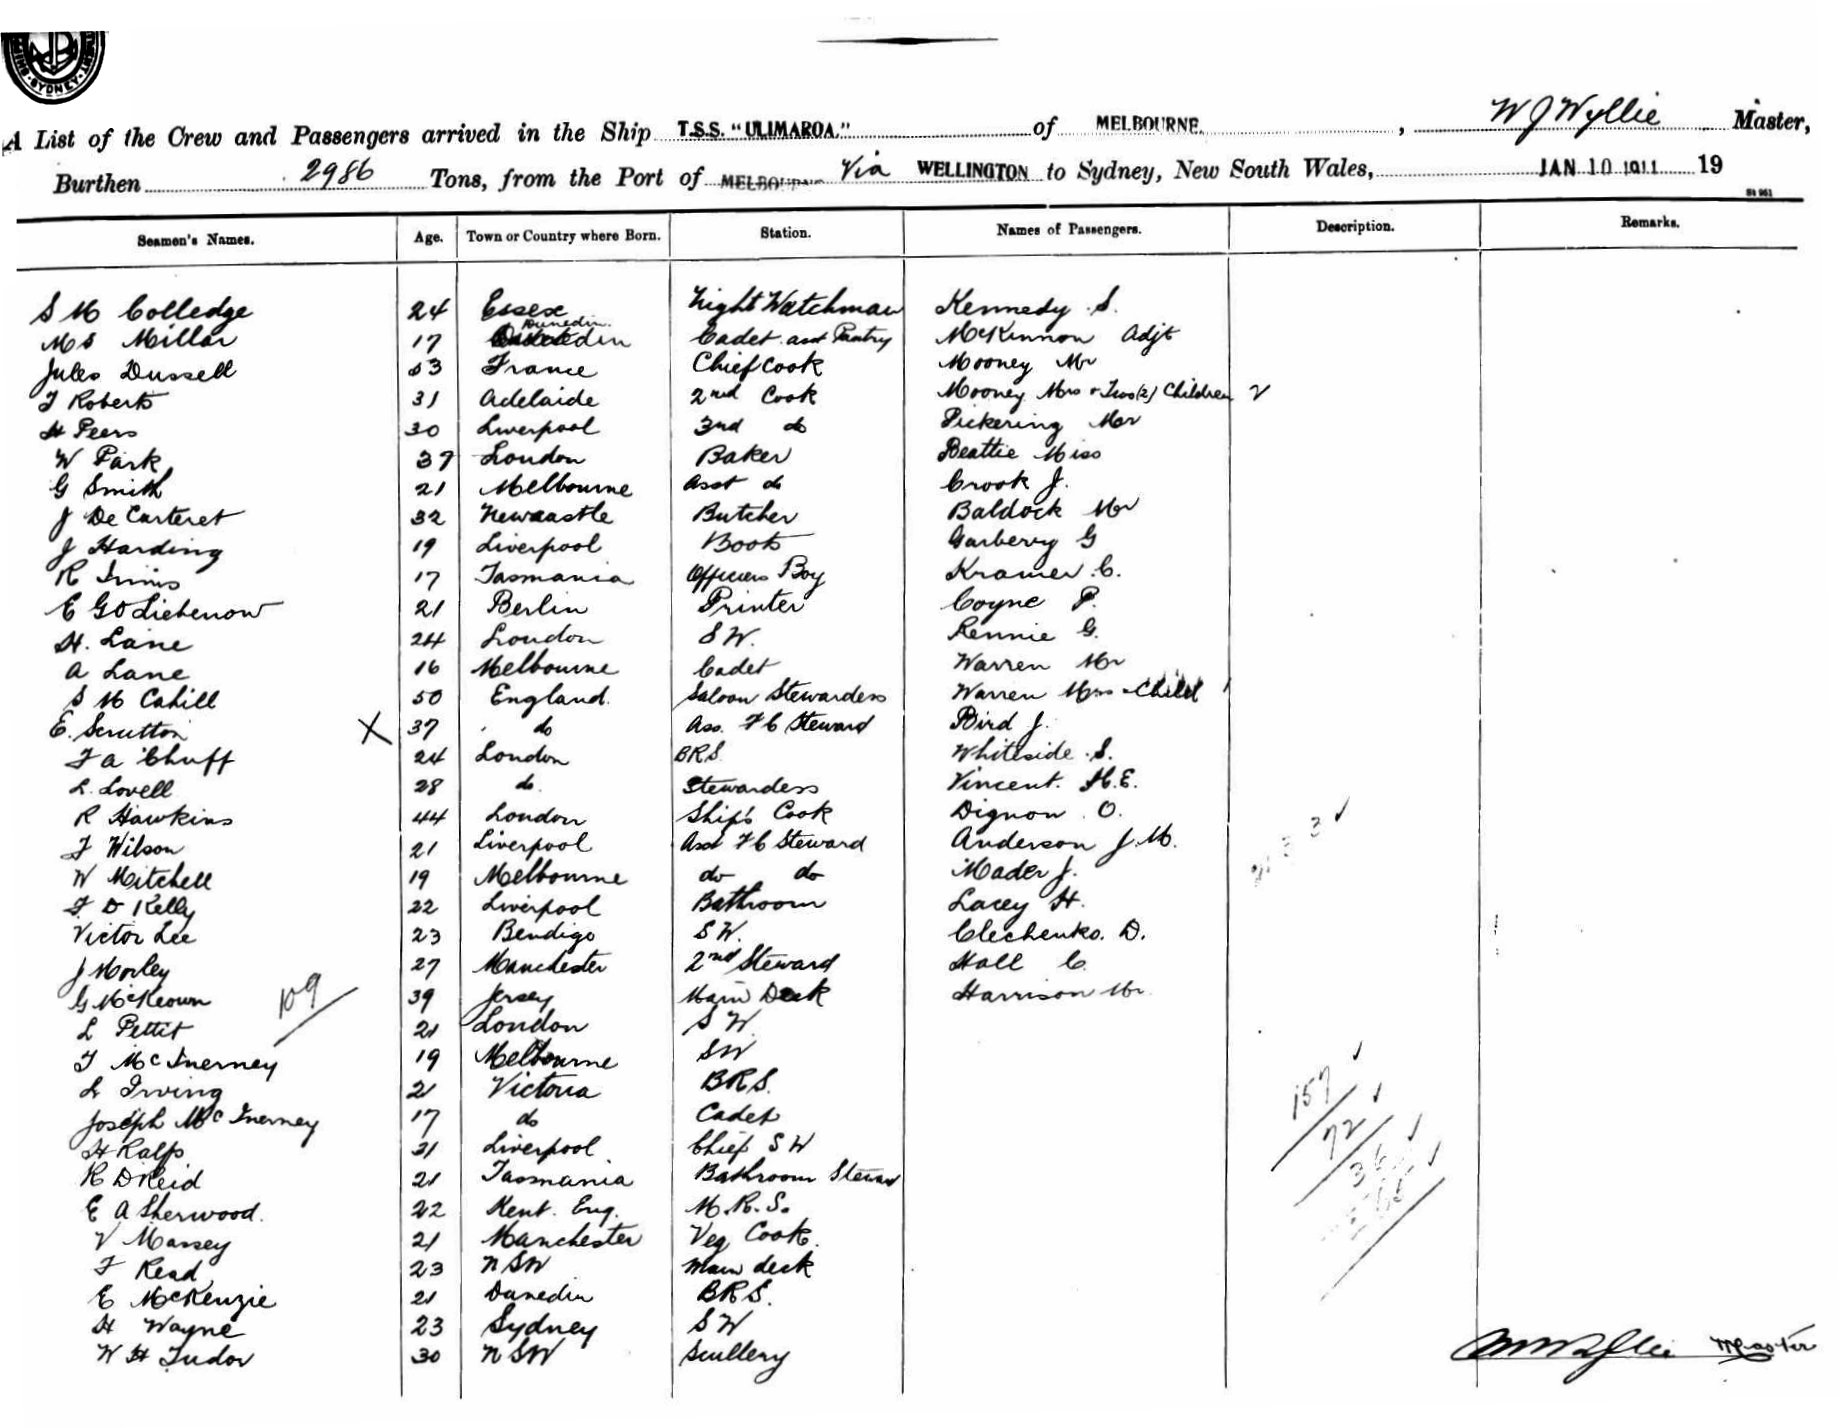 SYDNEY
A List of the Crew and Passengers arrived in the Ship T.S.S. "ULIMAROA." of MELBOURNE. , W J Wyllie Master,
Burthen 2986 Tons, from the Port of MELBOURNE Via WELLINGTON to Sydney, New South Wales, JAN 10 1911 19
St 961
Seamen's Names. Age. Town or Country where Born. Station. Names of Passengers. Description. Remarks.
S M Colledge 24 Essex Night Watchman Kennedy S.
M S Millar 17 Dunedin Cadet asst Pantry McKinnon Adjt
Jules Dussell 53 France Chief Cook Mooney Mr
F Roberts 31 Adelaide 2nd Cook Mooney Mrs & Two (2) Children 2
H Peers 30 Liverpool 3rd do Pickering Mr
W Park 37 London Baker Beattie Miss
G Smith 21 Melbourne Asst do Crook J.
J De Carteret 32 Newcastle Butcher Baldock Mr
J Harding 19 Liverpool Boots Garberry G
R Imms 17 Tasmania Officers Boy Kramer C.
E G O Liebenow 21 Berlin Printer Coyne P.
H. Lane 24 London S W. Rennie G.
A Lane 16 Melbourne Cadet Warren Mr
S M Cahill 50 England Saloon Stewardess Warren Mrs & Child 1
E. Scrutton X 37 do Ass. F C Steward Bird J.
F A Chuff 24 London B R S Whiteside S.
L. Lovell 28 do Stewardess Vincent. H. E.
R Hawkins 44 London Ship's Cook Dignon O.
F Wilson 21 Liverpool Asst F C Steward Anderson J. M.
W Mitchell 19 Melbourne do do Mader J.
F D Kelly 22 Liverpool Bathroom Lacey H.
Victor Lee 23 Bendigo S W. Clechenko. D.
J Morley 27 Manchester 2nd Steward Hall C
G McKeown 109 39 Jersey Main Deck Harrison Mr.
L Pettit 21 London S W.
T McInerney 19 Melbourne S W
L Irving 21 Victoria B R S.
Joseph McInerney 17 do Cadet 157
H Ralfs 31 Liverpool Chief S W 72
R D Reid 21 Tasmania Bathroom Steward 36
E A Sherwood. 22 Kent. Eng. M. R. S.
V Massey 21 Manchester Veg Cook.
F Read 23 N S W Main deck
E McKenzie 21 Dunedin B R S.
H Wayne 23 Sydney S W
W H Tudor 30 N S W Scullery Master